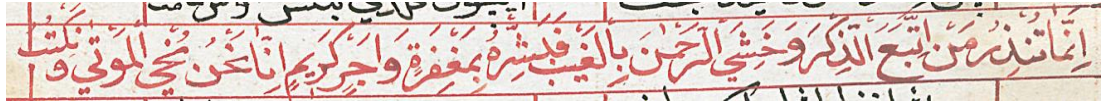 اِنَّمَا تُنْذِرُ مَنِ اتَّبَعَ الذِّكْرَ وَخَشِيَ الرَّحْمٰنَ بِالْغَيْبِ فَبَشِّرْهُ بِمَغْفِرَةٍ وَاَجْرٍ كَرِيمٍ اِنَّا نَحْنُ نُحْيِ الْمَوْتٰي وَنَكْتُبُ